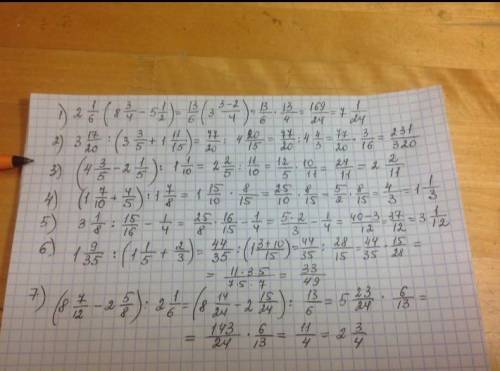 1) 2 1/6 (8 3/4 − 5 1/2) = 13/6 (3 (3−2)/4) = 13/6 · 13/4 = 169/24 = 7 1/24
2) 3 17/20 : (3 3/5 + 1 11/15) = 77/20 : 4 20/15 = 77/20 : 4 4/3 = 77/20 · 3/16 = 231/320
3) (4 3/5 − 2 1/5) : 1 1/10 = 2 2/5 : 11/10 = 12/5 · 10/11 = 24/11 = 2 2/11
4) (1 7/10 + 4/5) : 1 7/8 = 1 15/10 · 8/15 = 25/10 · 8/15 = 5/2 · 8/15 = 4/3 = 1 1/3
5) 3 1/8 : 15/16 − 1/4 = 25/8 · 16/15 − 1/4 = 5·2/3 − 1/4 = (40−3)/12 = 37/12 = 3 1/12
6) 1 9/35 : (1 1/5 + 2/3) = 44/35 : (1 (3+10)/15) = 44/35 : 28/15 = 44/35 · 15/28 =
= 11·3·5/7·5·7 = 33/49
7) (8 7/12 − 2 5/8) : 2 1/6 = (8 14/24 − 2 15/24) : 13/6 = 5 23/24 · 6/13 =
= 143/24 · 6/13 = 11/4 = 2 3/4